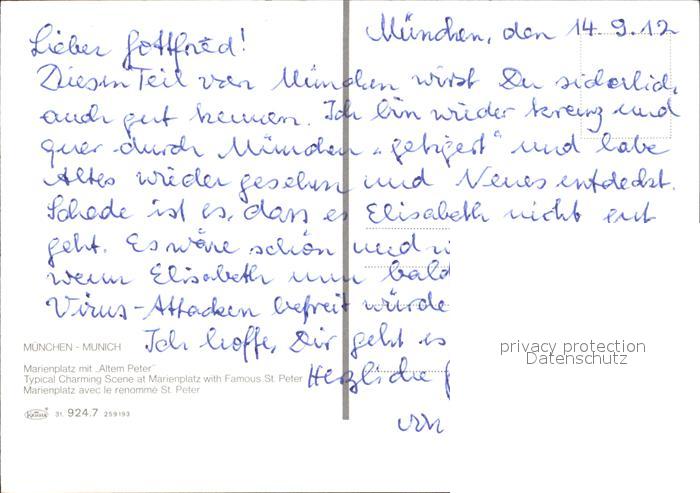 München, den 14. 9. 12
Lieber Gottfried!
Diesen Teil von München wirst Du sicherlich
auch gut kennen. Ich bin wieder kreuz und
quer durch München „getigert“ und habe
Altes wieder gesehen und Neues entdeckt.
Schade ist es, dass es Elisabeth nicht gut
geht. Es wäre schön und
wenn Elisabeth nun bald
Virus-Attacken befreit würde
Ich hoffe, Dir geht es
Herzliche
von
MÜNCHEN - MUNICH
Marienplatz mit „Altem Peter“
Typical Charming Scene at Marienplatz with Famous St. Peter
Marienplatz avec le renommé St. Peter
31. 924.7 259193
privacy protection
Datenschutz